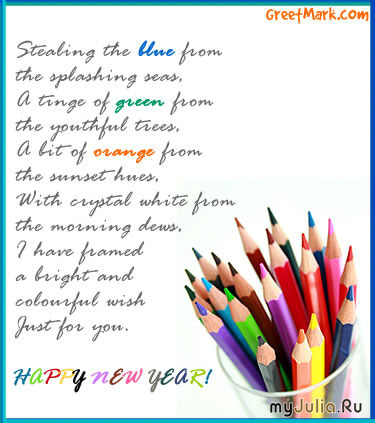 GreetMark.com
Stealing the blue from
the splashing seas,
A tinge of green from
the youthful trees,
A bit of orange from
the sunset hues,
With crystal white from
the morning dews,
I have framed
a bright and
colourful wish
Just for you.
HAPPY NEW YEAR!
myJulia.Ru